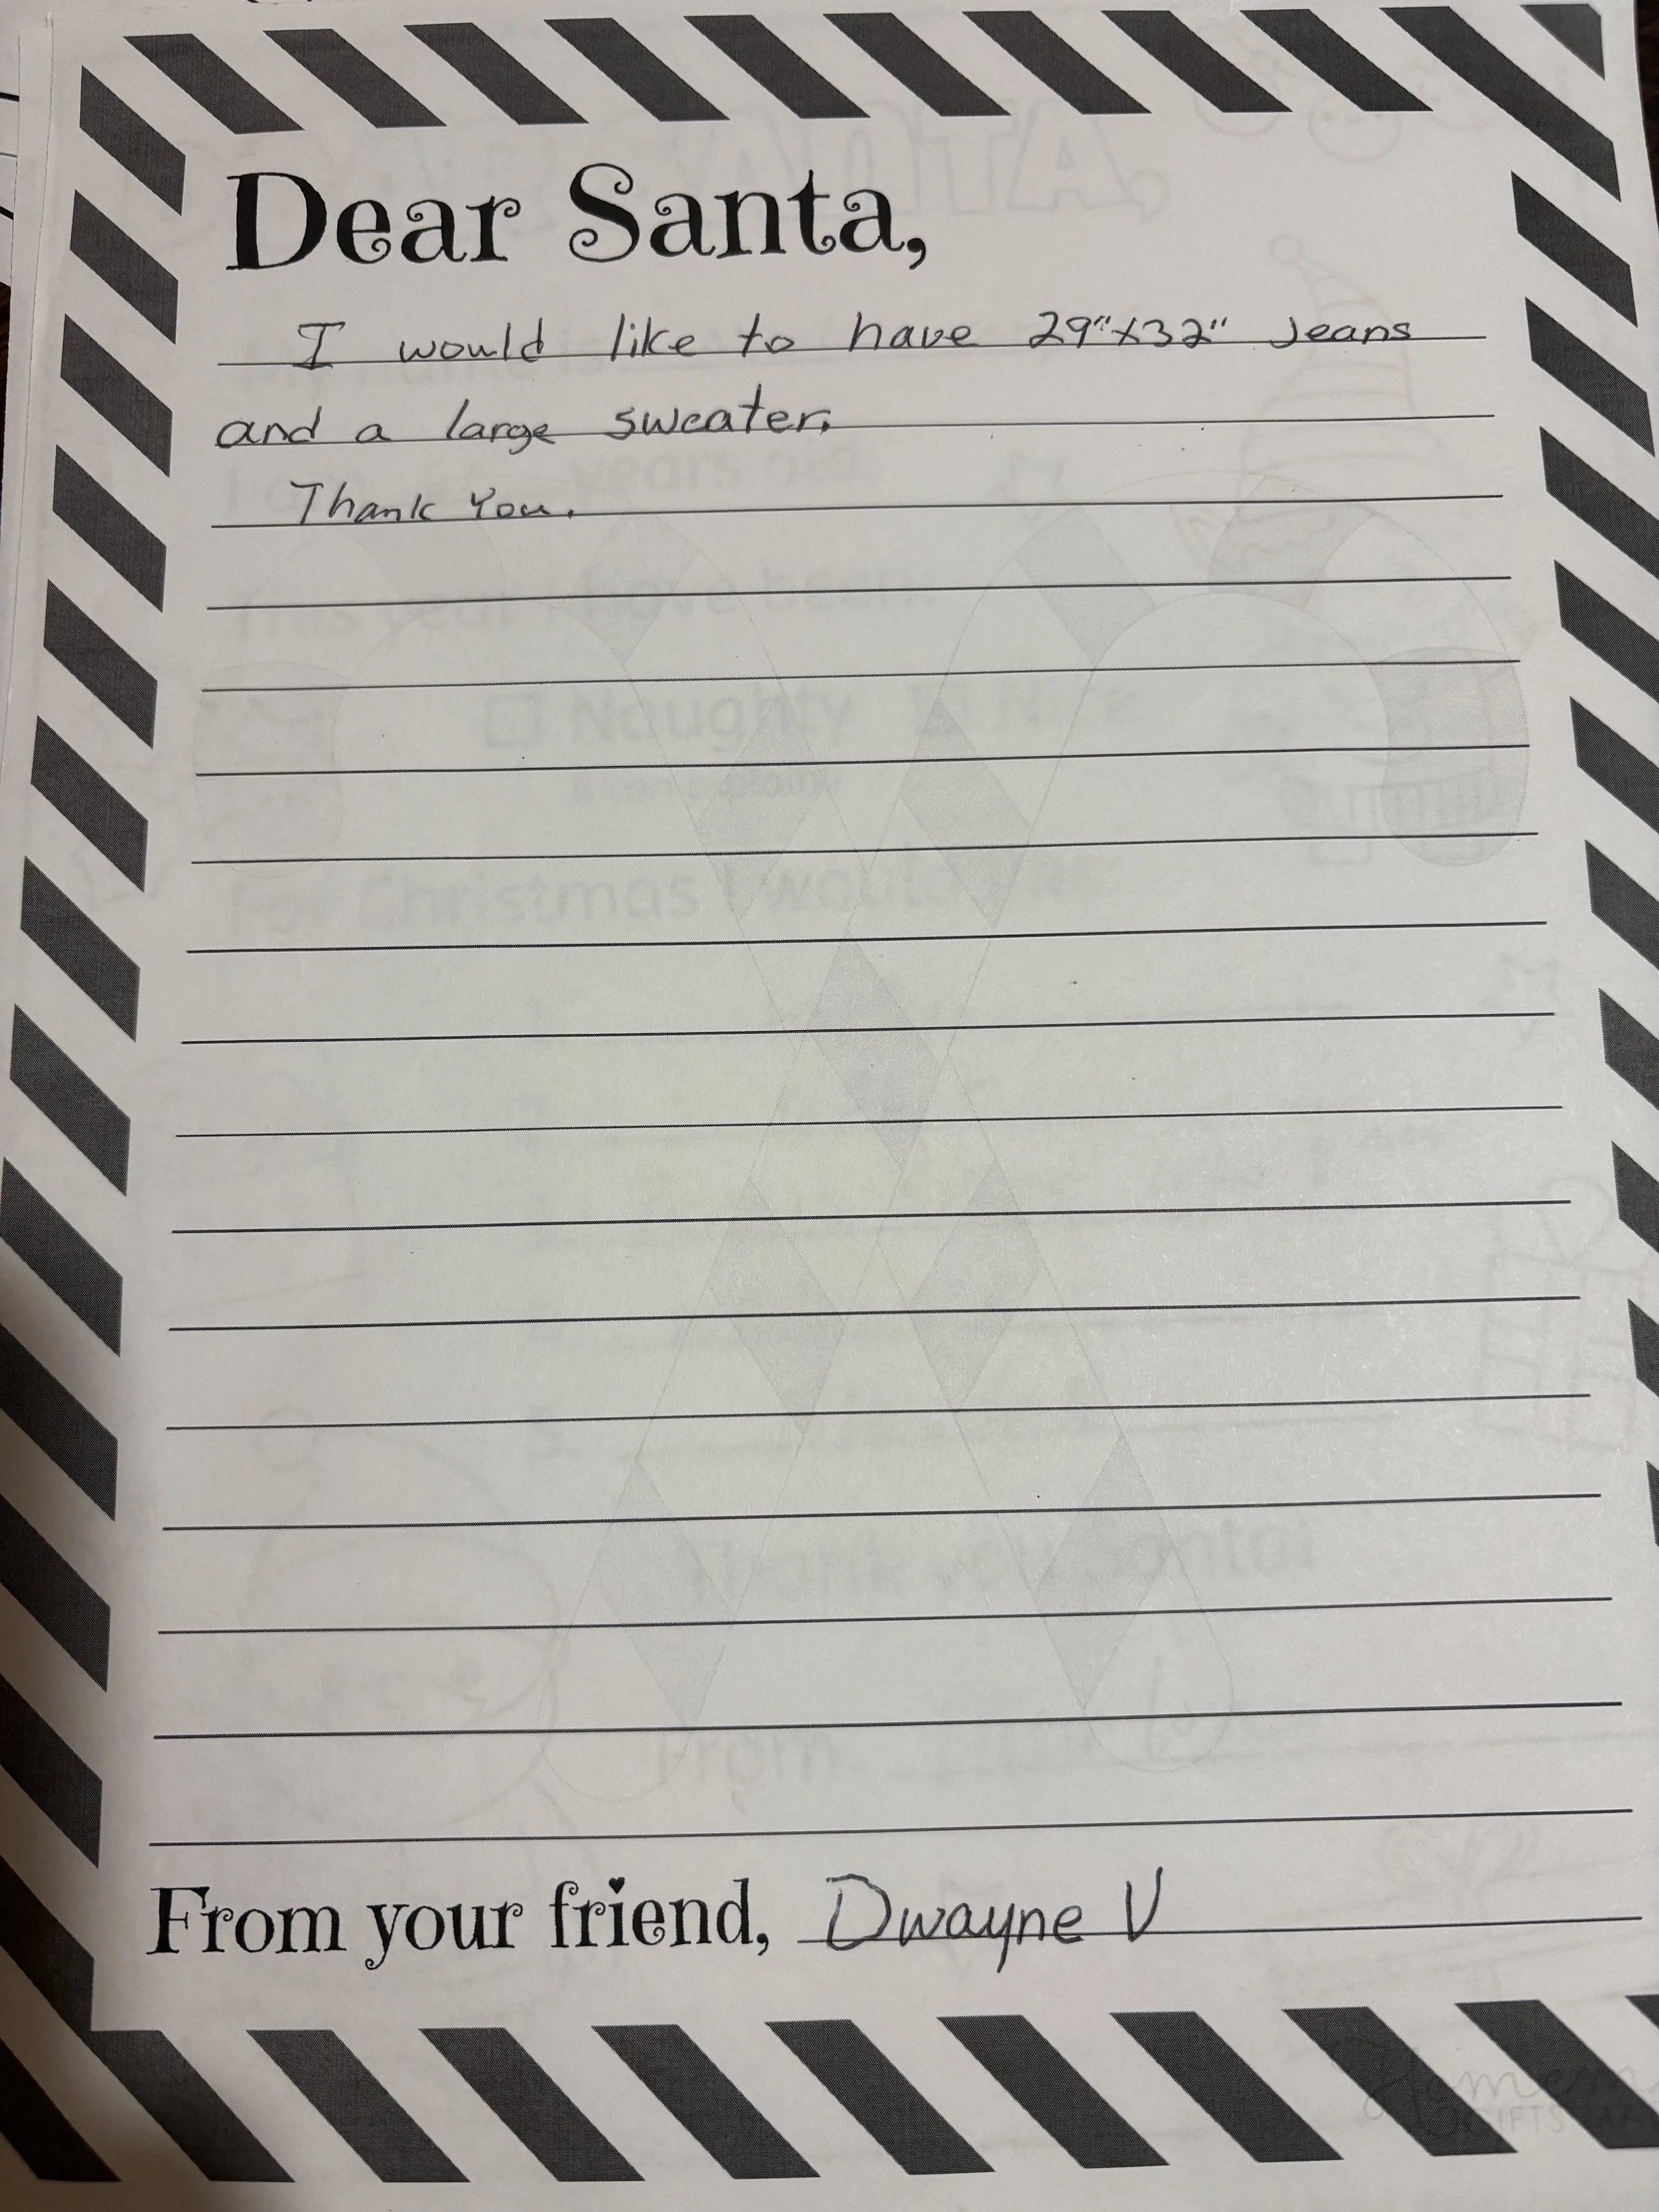 Dear Santa,
I would like to have 29"x32" Jeans
and a large sweater.
Thank You.
From your friend, Dwayne V